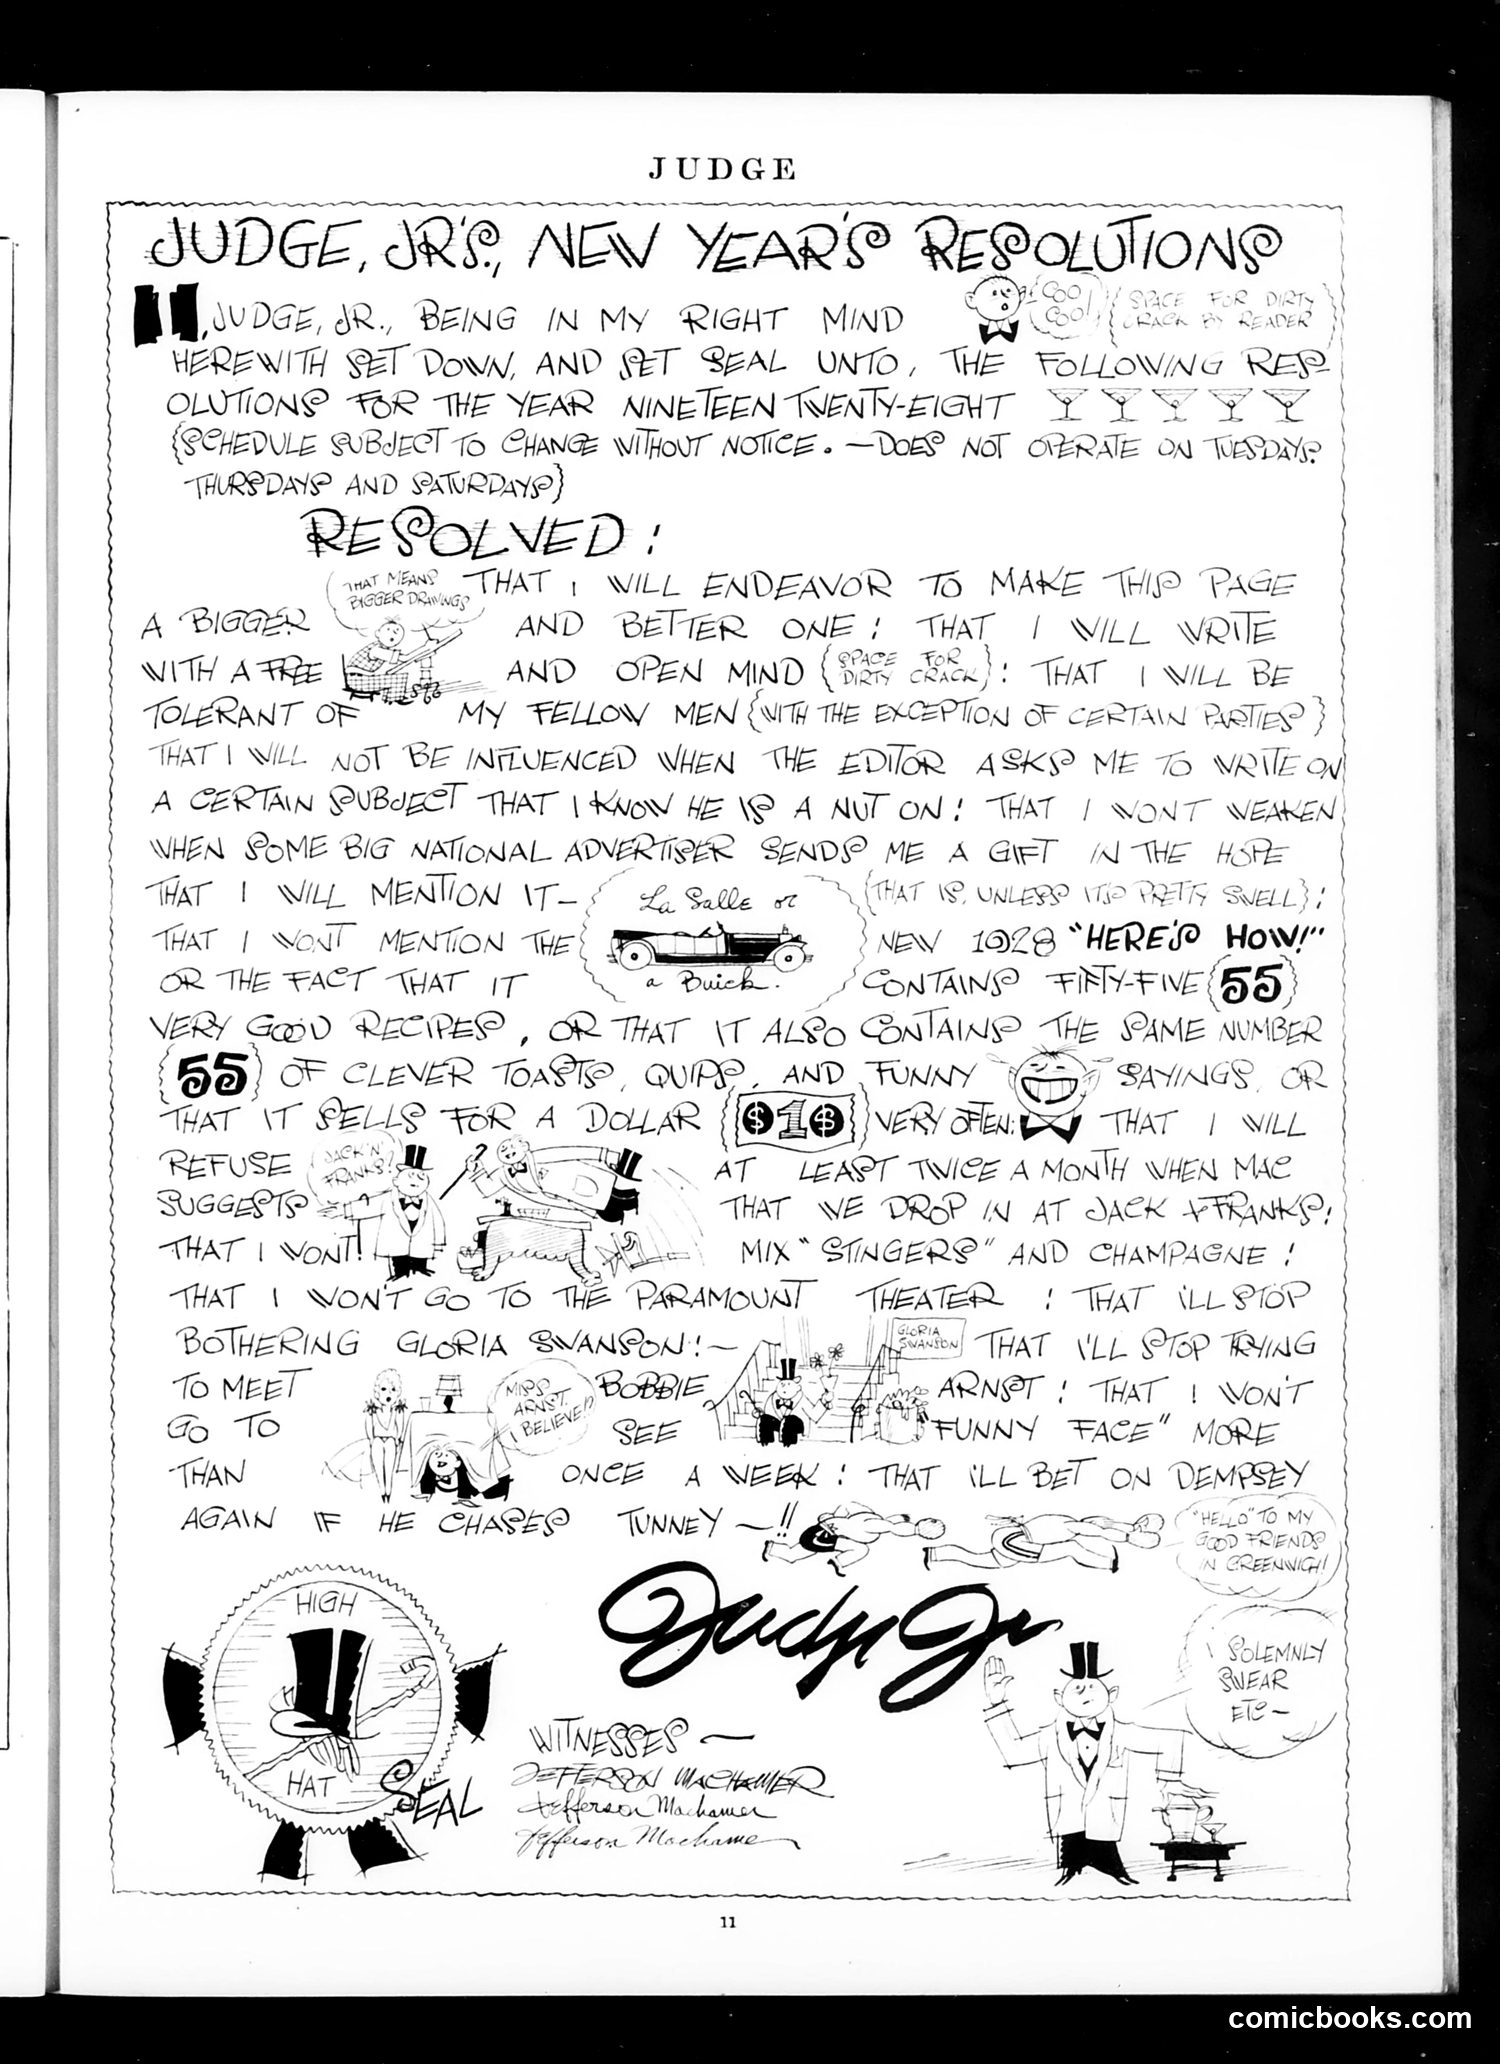 JUDGE
JUDGE, JR'S., NEW YEAR'S RESOLUTIONS
"I, JUDGE, JR., BEING IN MY RIGHT MIND
COO COO!
{SPACE FOR DIRTY CRACK BY READER}
HEREWITH SET DOWN, AND SET SEAL UNTO, THE FOLLOWING RES-
OLUTIONS FOR THE YEAR NINETEEN TWENTY-EIGHT
{SCHEDULE SUBJECT TO CHANGE WITHOUT NOTICE. —DOES NOT OPERATE ON TUESDAYS.
THURSDAYS AND SATURDAYS}
RESOLVED:
THAT MEANS BIGGER DRAWINGS
THAT I WILL ENDEAVOR TO MAKE THIS PAGE
A BIGGER AND BETTER ONE: THAT I WILL WRITE
WITH A FREE AND OPEN MIND {SPACE FOR DIRTY CRACK}: THAT I WILL BE
TOLERANT OF MY FELLOW MEN {WITH THE EXCEPTION OF CERTAIN PARTIES}
THAT I WILL NOT BE INFLUENCED WHEN THE EDITOR ASKS ME TO WRITE ON
A CERTAIN SUBJECT THAT I KNOW HE IS A NUT ON: THAT I WONT WEAKEN
WHEN SOME BIG NATIONAL ADVERTISER SENDS ME A GIFT IN THE HOPE
THAT I WILL MENTION IT— {THAT IS, UNLESS ITS PRETTY SWELL}:
La Salle or
a Buick.
THAT I WONT MENTION THE NEW 1928 "HERE'S HOW!"
OR THE FACT THAT IT CONTAINS FIFTY-FIVE {55}
VERY GOOD RECIPES, OR THAT IT ALSO CONTAINS THE SAME NUMBER
{55} OF CLEVER TOASTS, QUIPS, AND FUNNY SAYINGS, OR
THAT IT SELLS FOR A DOLLAR {$1$} VERY OFTEN: THAT I WILL
JACK 'N' FRANKS?
REFUSE AT LEAST TWICE A MONTH WHEN MAC
SUGGESTS THAT WE DROP IN AT JACK + FRANKS:
THAT I WONT! MIX "STINGERS" AND CHAMPAGNE:
THAT I WON'T GO TO THE PARAMOUNT THEATER: THAT I'LL STOP
GLORIA SWANSON
BOTHERING GLORIA SWANSON:— THAT I'LL STOP TRYING
MISS ARNST, I BELIEVE!?
TO MEET BOBBIE ARNST: THAT I WON'T
GO TO SEE "FUNNY FACE" MORE
THAN ONCE A WEEK: THAT I'LL BET ON DEMPSEY
AGAIN IF HE CHASES TUNNEY —!!
"HELLO" TO MY GOOD FRIENDS IN GREENWICH!
Judge Jr
HIGH
HAT
SEAL
I SOLEMNLY
SWEAR
ETC—
WITNESSES —
JEFFERSON MACHAMER
Jefferson Machamer
Jefferson Machamer
11
comicbooks.com